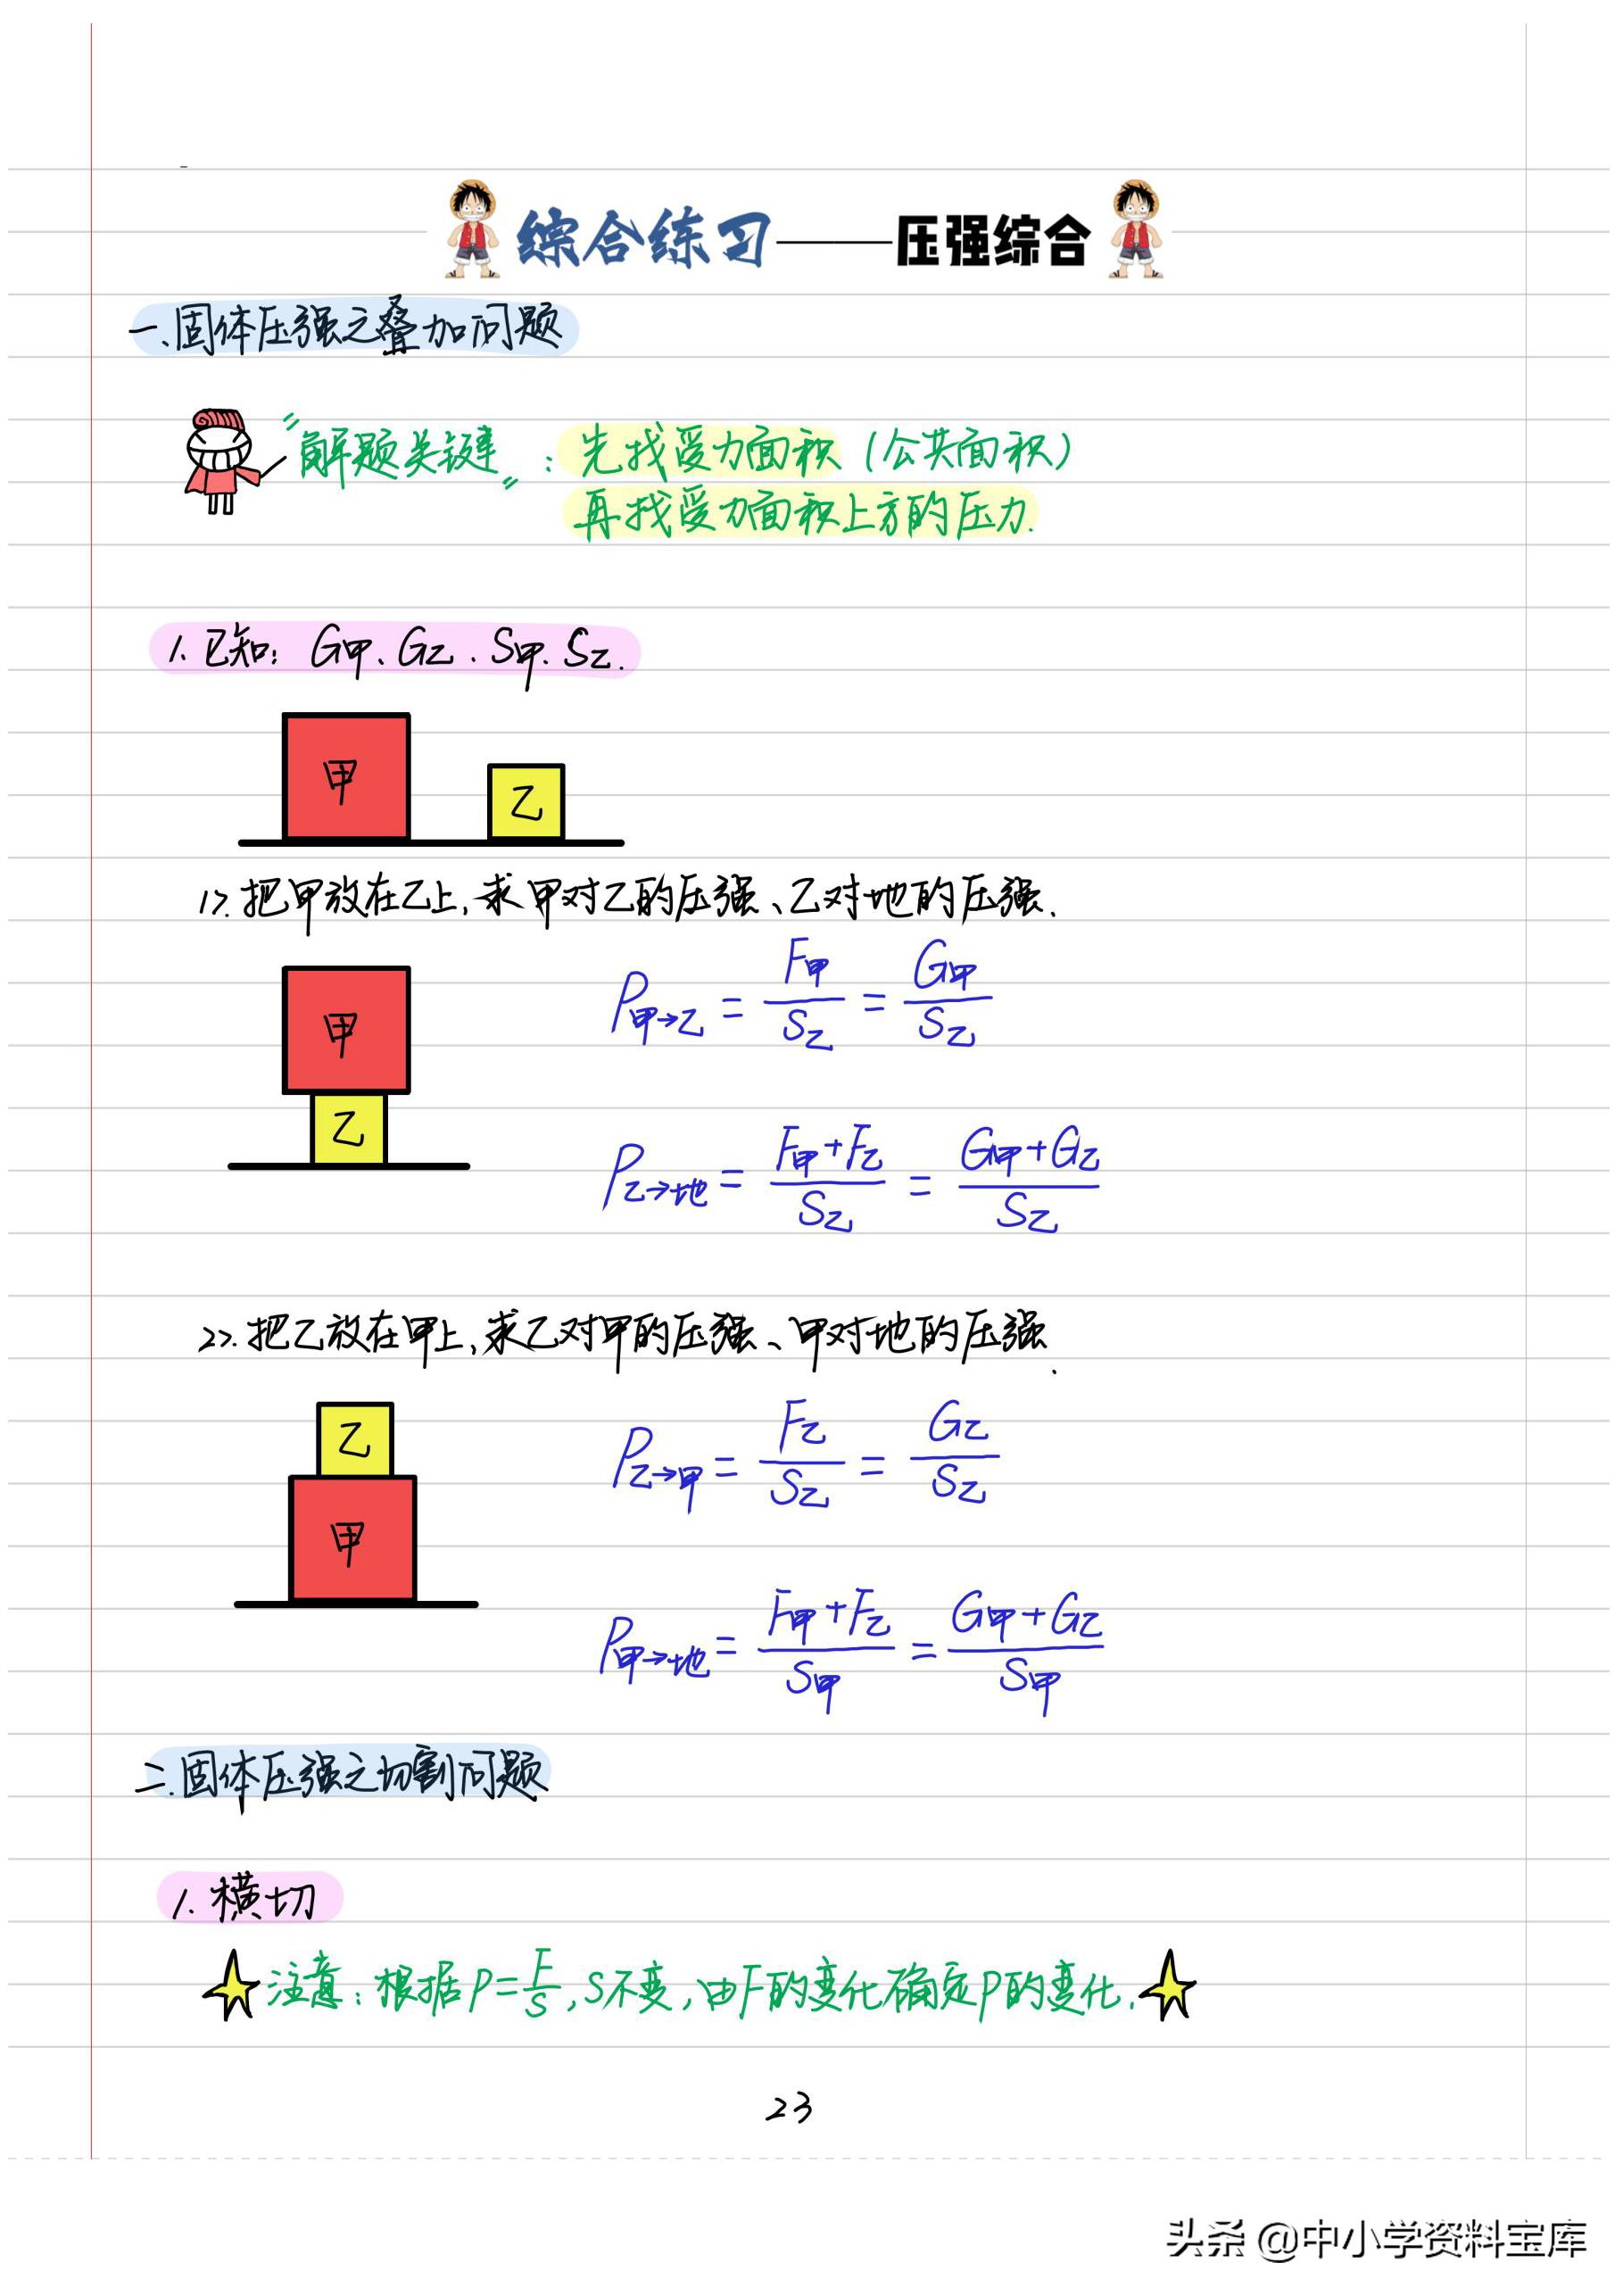 综合练习——压强综合
一、固体压强之叠加问题
"解题关键":先找受力面积(公共面积)
再找受力面积上方的压力.
1.已知:G甲、G乙、S甲、S乙.
甲
乙
1>.把甲放在乙上,求甲对乙的压强、乙对地的压强.
甲
乙
P甲→乙 = F甲/S乙 = G甲/S乙
P乙→地 = (F甲+F乙)/S乙 = (G甲+G乙)/S乙
2>.把乙放在甲上,求乙对甲的压强、甲对地的压强.
乙
甲
P乙→甲 = F乙/S乙 = G乙/S乙
P甲→地 = (F甲+F乙)/S甲 = (G甲+G乙)/S甲
二.固体压强之切割问题
1.横切
注意:根据P=F/S,S不变,由F的变化确定P的变化.
23
头条 @中小学资料宝库